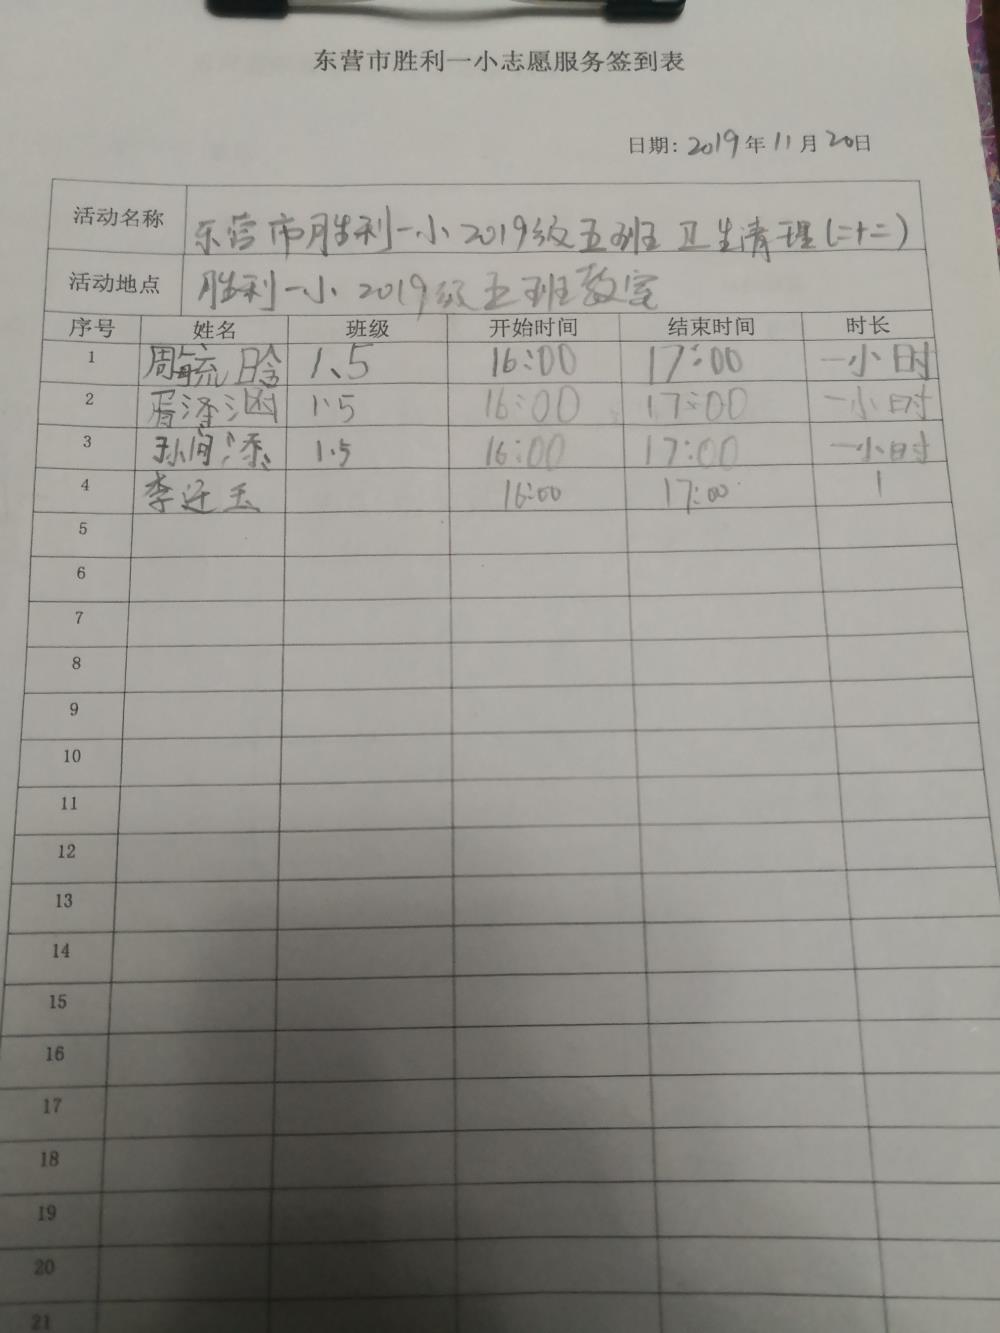 东营市胜利一小志愿服务签到表
日期: 2019年11月20日
活动名称 东营市胜利一小2019级五班卫生清理(二十二)
活动地点 胜利一小2019级五班教室
序号 姓名 班级 开始时间 结束时间 时长
1 周毓晗 1、5 16:00 17:00 一小时
2 胥泽 1.5 16:00 17:00 一小时
3 孙 1.5 16:00 17:00 一小时
4 李 玉 16:00 17:00 1
5
6
7
8
9
10
11
12
13
14
15
16
17
18
19
20
21